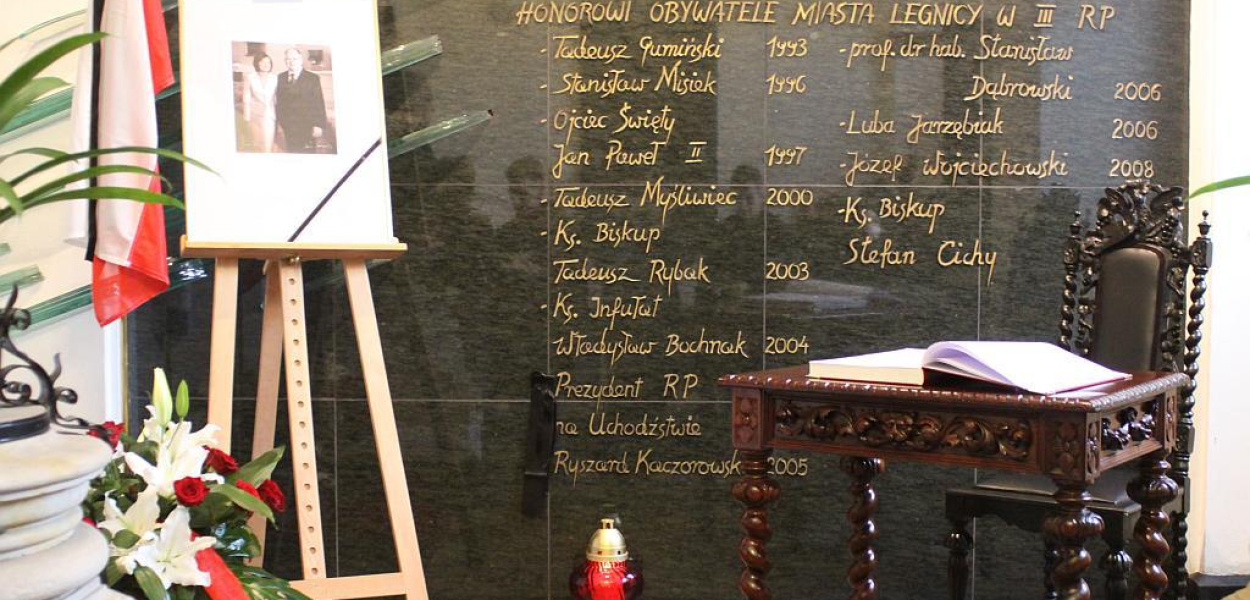 HONOROWI OBYWATELE MIASTA LEGNICY W III RP
-Tadeusz Gumiński 1993
-Stanisław Misiek 1996
-Ojciec Święty
Jan Paweł II 1997
-Tadeusz Myśliwiec 2000
-Ks. Biskup
Tadeusz Rybak 2003
-Ks. Infułat
Władysław Bochnak 2004
-Prezydent RP
na Uchodźstwie
Ryszard Kaczorowsk 2005
-prof. dr hab. Stanisław
Dąbrowski 2006
-Luba Jarzębiak 2006
-Józef Wojciechowski 2008
-Ks. Biskup
Stefan Cichy